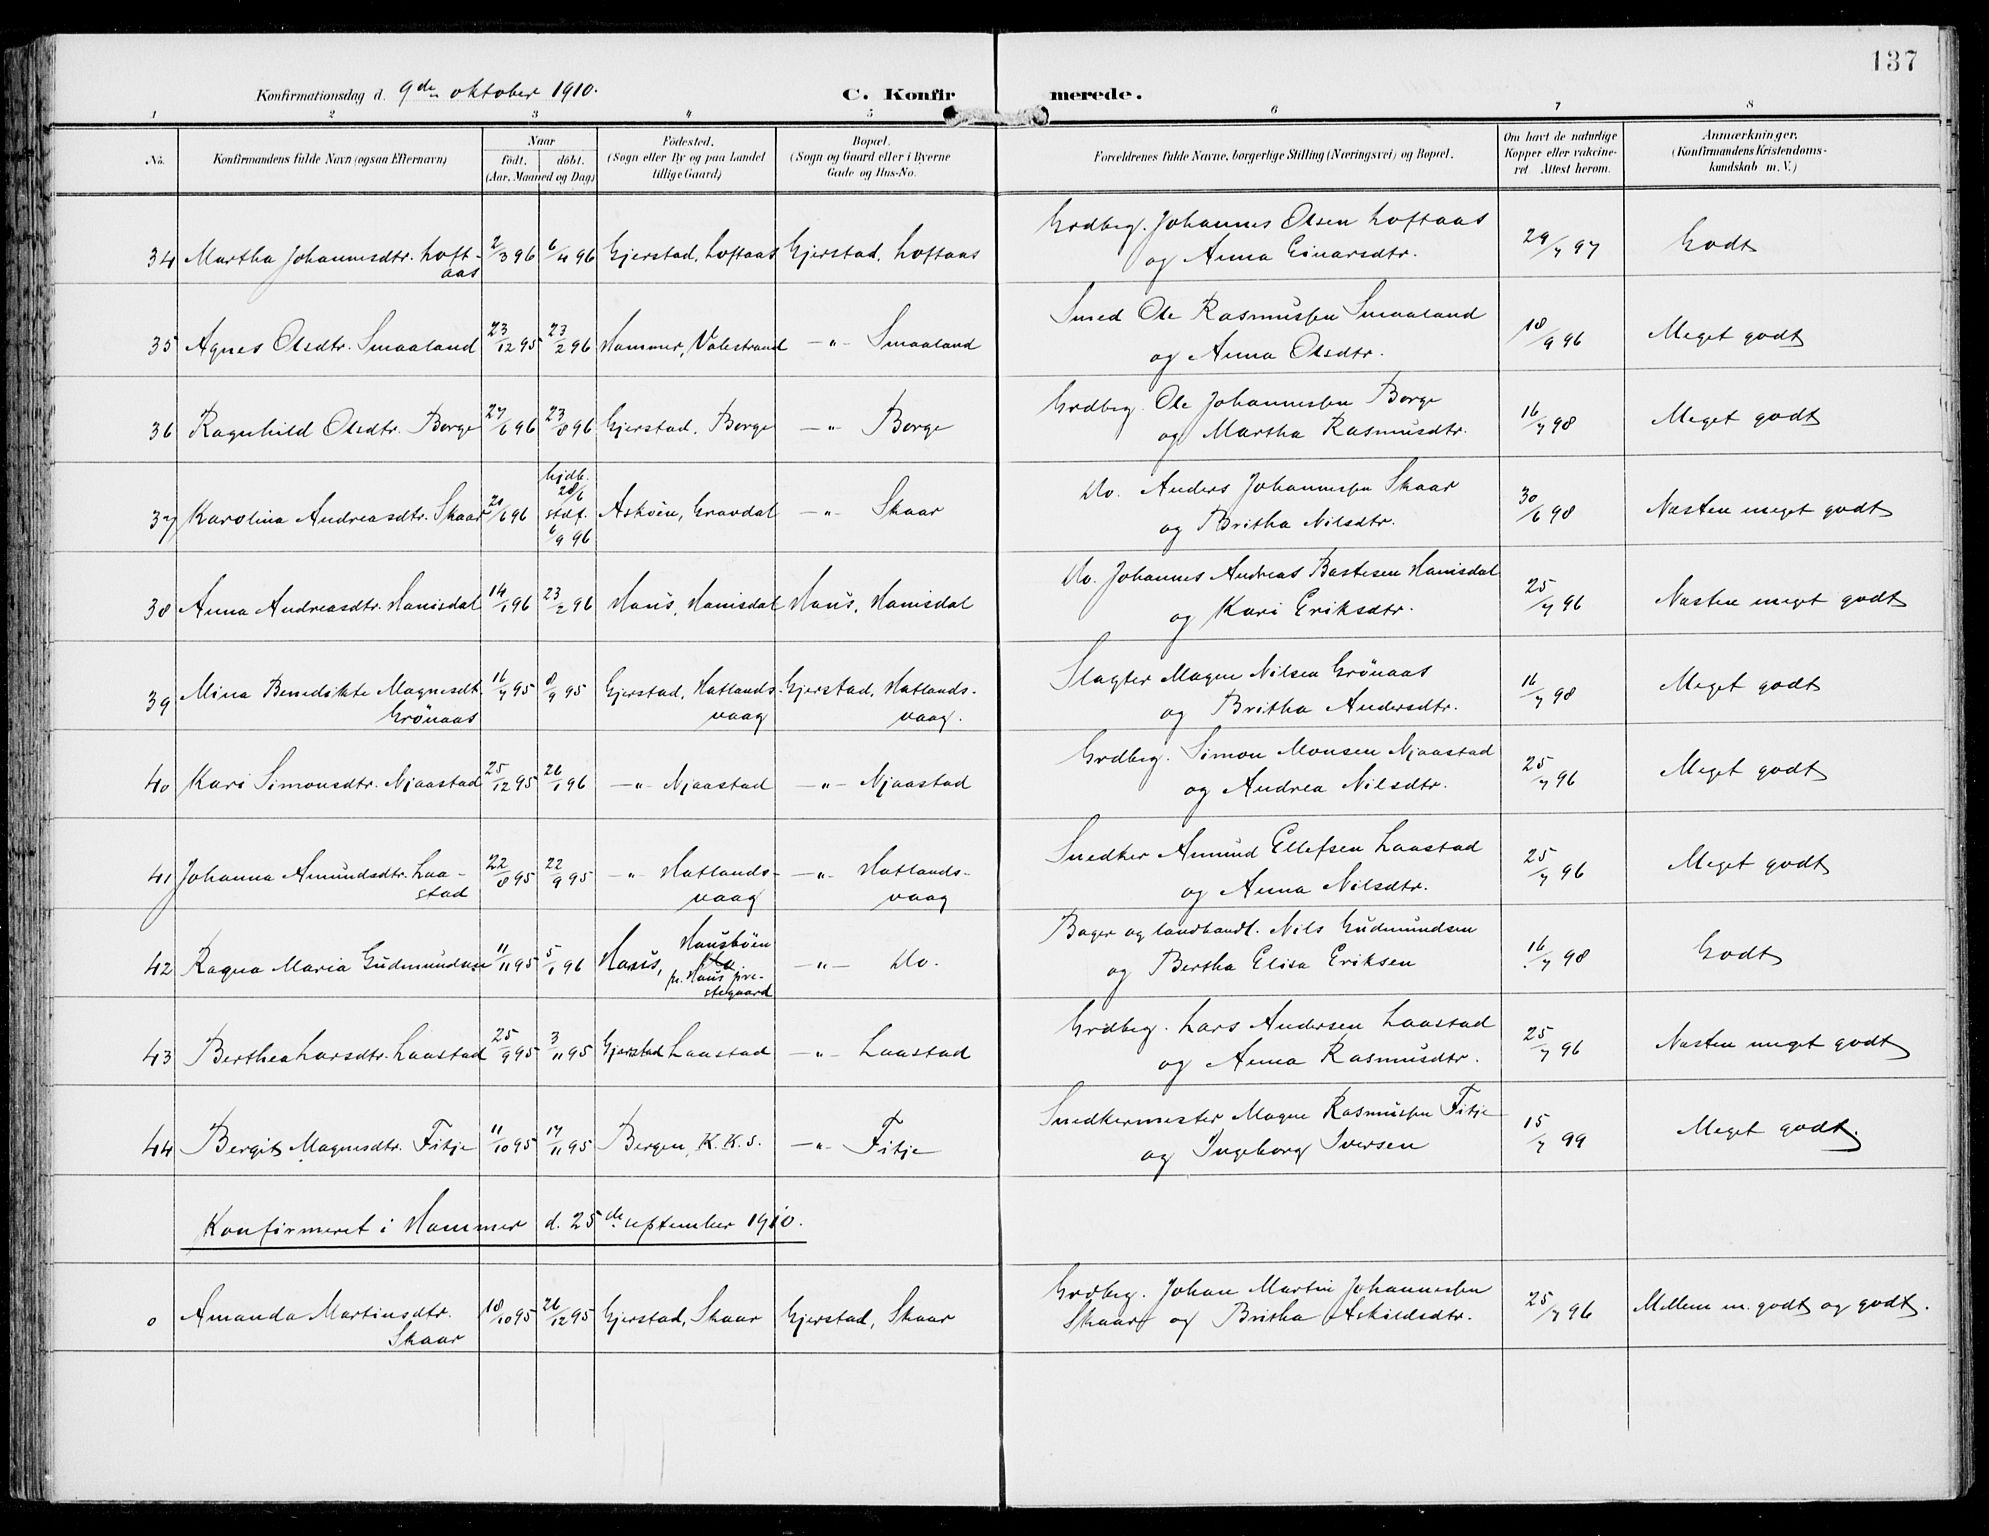 137
Konfirmationsdag d. 9de oktober 1910. C. Konfirmerede.
1 2 3 4 5 6 7 8
No. Konfirmandens fulde Navn (ogsaa Efternavn) Naar født. døbt. (Aar, Maaned og Dag) Födested. (Sogn eller By og paa Landet tillige Gaard) Bopæl. (Sogn og Gaard eller i Byerne Gade og Hus-No. Forældrenes fulde Navne, borgerlige Stilling (Næringsvei) og Bopæl. Om havt de naturlige Kopper eller vakcineret Attest herom. Anmærkninger. (Konfirmandens Kristendomskundskab m. V.)
34 Martha Johannesdtr. Loftaas 2/3 96 6/4 96 Gjerstad, Loftaas Gjerstad, Loftaas Grdbrg. Johannes Olsen Loftaas og Anna Einarsdtr. 29/7 97 Godt
35 Agnes Olsdtr. Smaaland 23/12 95 23/2 96 Hammer, Valestrand —"— Smaaland Smed Ole Rasmussen Smaaland og Anna Olsdtr. 18/9 96 Meget godt
36 Ragnhild Olsdtr. Borge 27/6 96 23/8 96 Gjerstad, Borge —"— Borge Grdbrg. Ole Johannessen Borge og Martha Rasmusdtr. 16/7 98 Meget godt
37 Karolina Andreasdtr. Skaar 20/6 96 hjdb. 28/6 stdf. 6/9 96 Asköen, Gravdal —"— Skaar Do. Anders Johannessen Skaar og Britha Nilsdtr. 30/6 98 Næsten meget godt
38 Anna Andreasdtr. Hanisdal 14/1 96 23/2 96 Haus, Hanisdal Haus, Hanisdal Do. Johannes Andreas Bastesen Hanisdal og Kari Eriksdtr. 25/7 96 Næsten meget godt
39 Mina Benedikte Magnesdt. Grönaas 16/7 95 8/9 95 Gjerstad, Hatlandsvaag Gjerstad, Hatlandsvaag. Slagter Magne Nilsen Grönaas og Britha Andersdtr. 16/7 98 Meget godt
40 Kari Simonsdtr. Njaastad 25/12 95 26/1 96 —"— Njaastad —"— Njaastad Grdbrg. Simon Monsen Njaastad og Andrea Nilsdtr. 25/7 96 Meget godt
41 Johanna Amundsdtr. Laastad 22/8 95 22/9 95 —"— Hatlandsvaag —"— Hatlandsvaag Snedker Amund Ellefsen Laastad og Anna Nilsdtr. 25/7 96 Meget godt
42 Ragna Maria Gudmundsen 11/11 95 5/1 96 Haus, Hausböen pr. Haus prestegaard —"— Do. Bager og landhandl. Nils Gudmundsen og Bertha Elisa Eriksen 16/7 98 Godt
43 Berthea Larsdtr. Laastad 25/9 95 3/11 95 Gjerstad Laastad —"— Laastad Grdbrg. Lars Andersen Laastad og Anna Rasmusdtr. 25/7 96 Næsten meget godt
44 Bergit Magnesdtr. Fitje 11/10 95 17/11 95 Bergen, K.K.S. —"— Fitje Snedkermester Magne Rasmussen Fitje og Ingeborg Iversen 15/7 99 Meget godt.
Konfirmeret i Hammer d. 25de september 1910.
0 Amanda Martinsdtr. Skaar 18/10 95 26/12 95 Gjerstad, Skaar Gjerstad, Skaar Grdbrg. Johan Martin Johannessen Skaar og Britha Askildsdtr. 25/7 96 Mellem m. godt og godt.